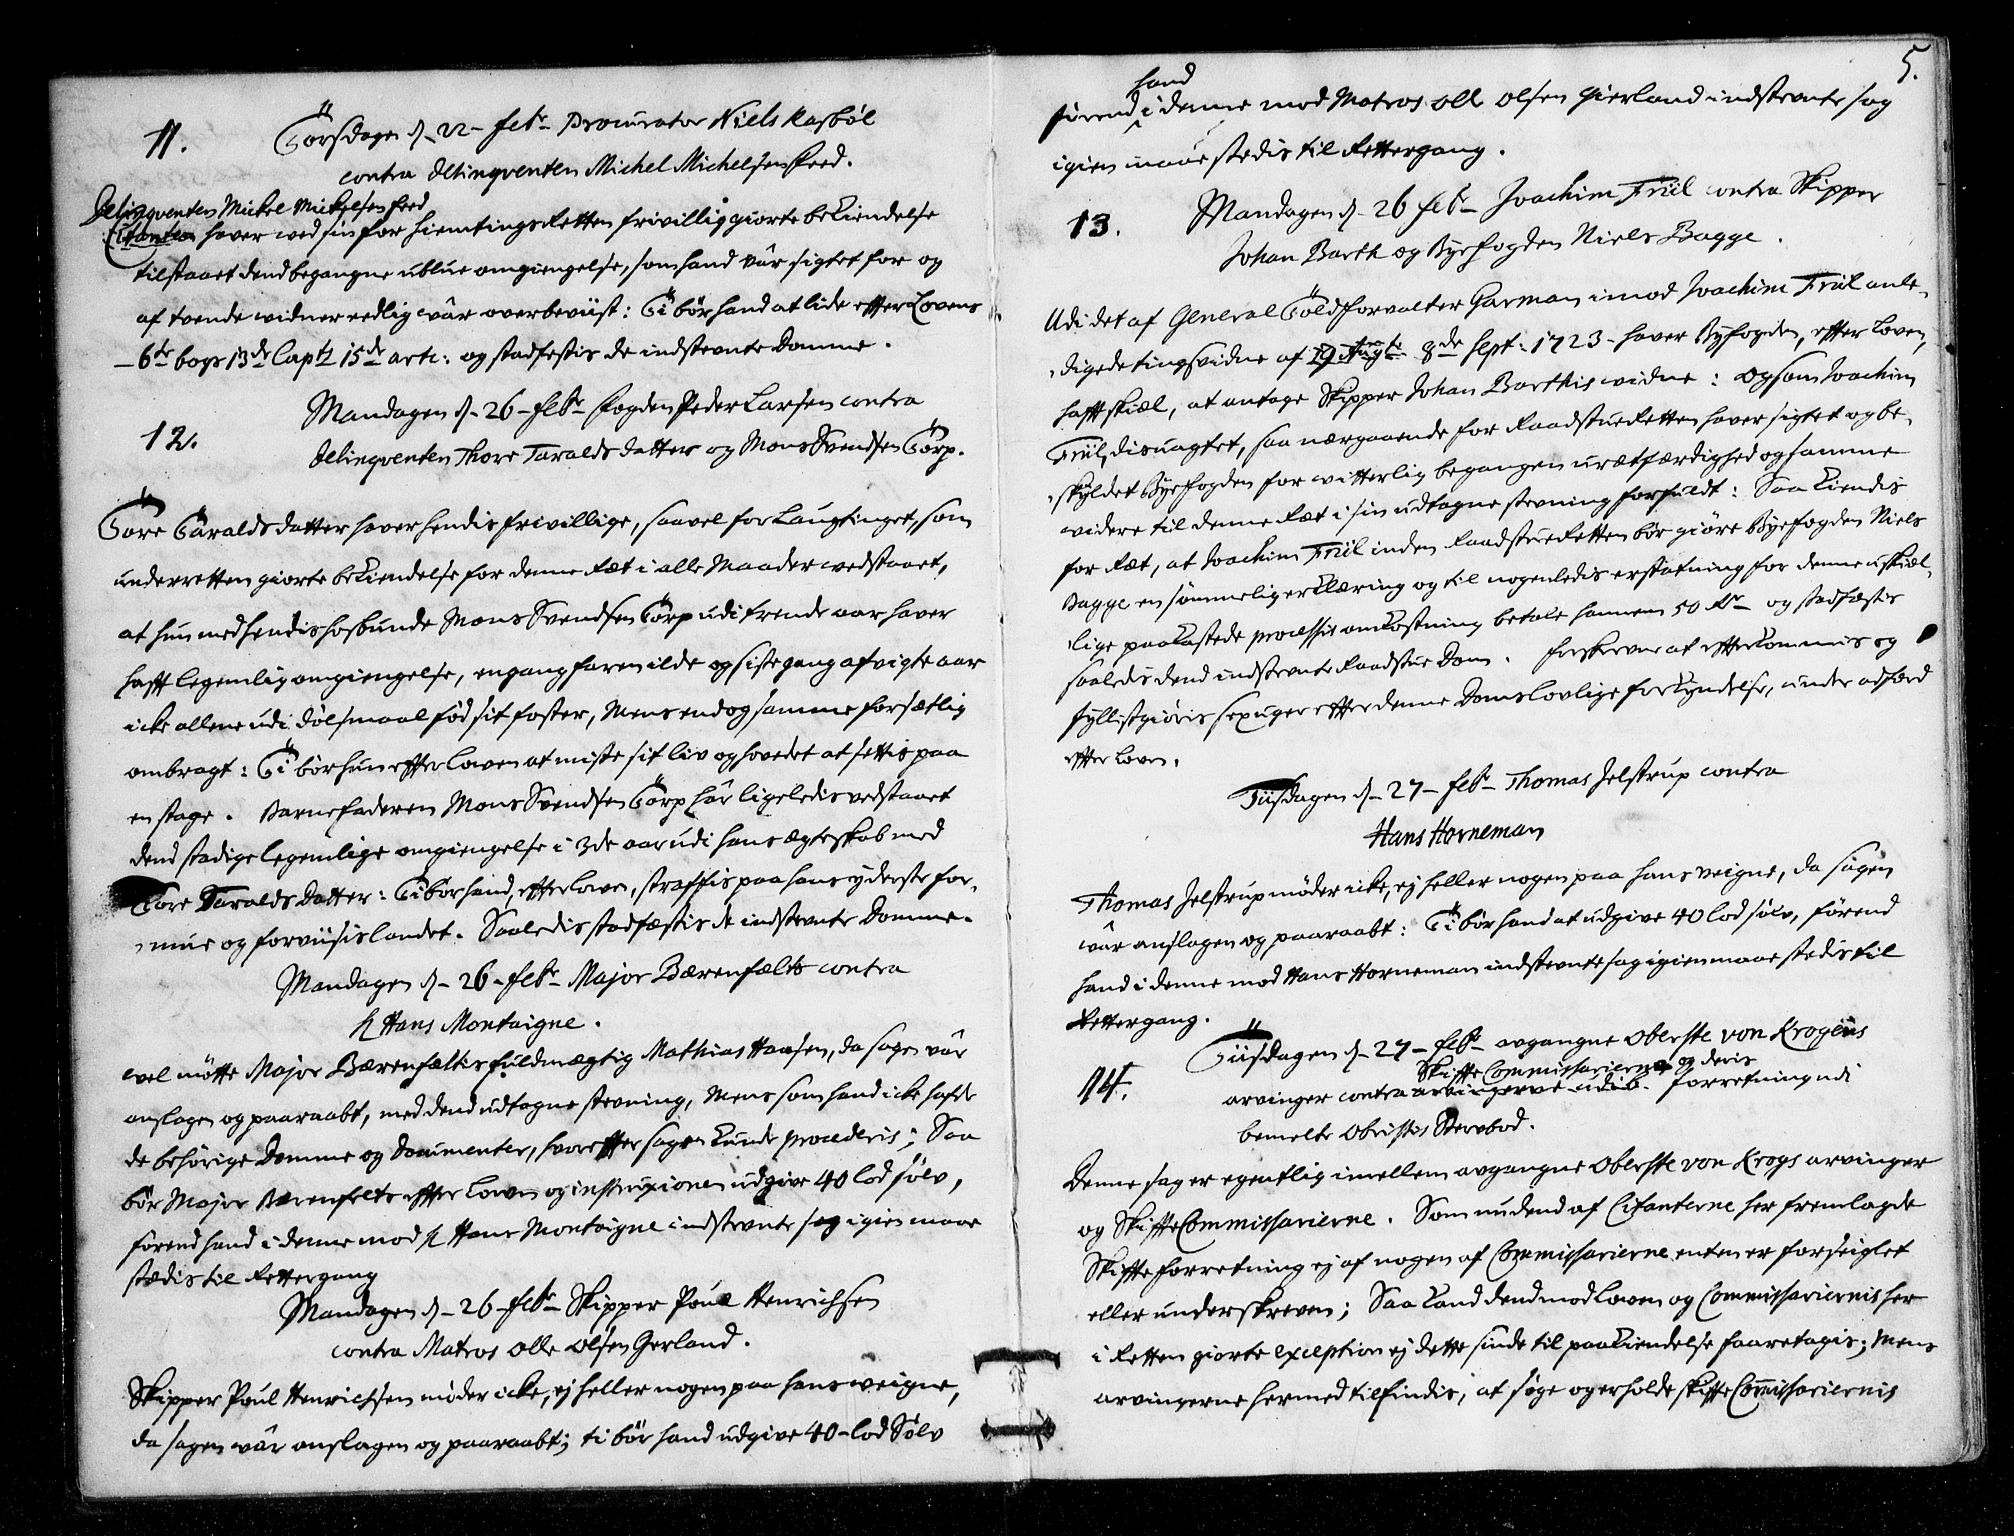 11. Torsdagen d. 22 febr. Procurator Niels Kasböl
contra delinqventen Michel Michelsen
Delinqventen Mickel Mickelsen
Citanten haver wed sin for hiemtings Retten frivillig giorte bekiendelse
tilstaaet dend begangne ublue omgiengelse, som hand vâr sigtet for og
af tvende widner eedlig wâr overbeviist: Ti bör hand at lide effter Lovens
6te bogs 13de Capts 15de artc: og stadfestis de indstevnte Domme.
12. Mandagen d. 26 febr. fogden Peder Larsen contra
delinqventen Thore Taralds datter og Mons Svendsen Torp.
Tore Taralds datter haver hendis frivillige, saavel for Laugtinget, som
underretten giorte bekiendelse for denne Ræt i alle Maader wedstaaet,
at hun med hendis hosbunde Mons Svendsen Torp udi trende aar haver
hafft legemlig omgiengelse, en gang faren ilde og siste gang afvigte aar
icke allene udi dölsmaal fød sit foster, Mens endog samme forsætlig
ombragt: Ti bör hun effter Loven at miste sit liv og hovedet at settis paa
en stage. Barnefaderen Mons Svendsen Torp hâr ligeledis vedstaaet
dend stadige legemlige omgiengelse i 3de aar udi hans ægteskab med
Tore Taralds Datter: Ti bör hand, effter Loven, straffis paa hans yderste for-
mue og forviisis landet. Saaledis stadfæstis de indstevnte Domme.
Mandagen d. 26 febr. Major Bærenfælts contra
Hr Hans Montaigne.
wel mötte Major Bærenfæltis fuldmægtig Mathias Hansen, da sagen vâr
anslagen og paaraabt, med dend udtagne stevning, Mens som hand icke hafde
de behörige Domme og Documenter, hvoreffter sagen kunde procederis; Saa
bör Major Bærenfelts effter Loven og instruxionen udgive 40 lod sölv,
förend hand i denne mod Hr Hans Montaigne indstevnte sag igien maae
stædis til Rettergang
Mandagen d. 26 febr. Skipper Poul Henrichsen
contra Matros Olle Olsen Gerland.
Skipper Poul Henrichsen möder icke, ej heller nogen paa hans weigne,
da sagen wâr anslagen og paaraabt; ti bör hand udgive 40 lod Sölv
5.
hand
förend i denne mod Matros Oll Olsen Gierland indstevnte sag
igien maae stedis til Rettergang.
13. Mandagen d. 26 febr. Joachim Friil contra Skipper
Johan Barth og Byefogden Niels Bagge.
Udi det af General Toldforvalter Garman imod Joachim Friil anle-
digede tingsvidne af 19 Augti 8de Sept: 1723 haver Byfogden, effter Loven,
hafft skiæl, at antage Skipper Johan Barthis widne: og som Joachim
Friil, disuagtet, saa nærgaaende for Raadstue Retten haver sigtet og be-
skyldet Byefogden for witterlig begangen urætfærdighed og samme
widere til denne Ræt i sin udtagne stevning forfuldt: Saa kiendis
for Ræt, at Joachim Friil inden Raadstue Retten bör giöre Byefogden Niels
Bagge en sömmelig erklæring og til nogenledis erstatning for denne uskiæl-
lige paakastede processis omkostning betale hannem 50 Rdr og stadfæstis
saaledis dend indstevnte Raadstue Dom. forskrevne at effterkommis og
fyllistgiöris sex uger effter denne Doms lovlige forkyndelse, under adfærd
effter Loven.
Tiisdagen d. 27 febr. Thomas Jelstrup contra
Hans Horneman
Thomas Jelstrup möder icke, ej heller nogen paa hans weigne, da sagen
wâr anslagen og paaraabt: Ti bör hand at udgive 40 lod sölv, förend
hand i denne mod Hans Horneman indstevnte sag igien maae stedis til
Rettergang.
14. Tiisdagen d. 27 febr. avgangne Oberste von Krogens
Skiffte Commissarierne og deris
arvinger contra forretning udi
bemelte Obristis Sterbod.
Denne sag er egentlig imellem avgangne Oberste von Krogs arvinger
og Skiffte Commissarierne. Som nu dend af Citanterne her fremlagde
Skiffte forretning ej af nogen af Commissarierne enten er forseiglet
eller underskreven; Saa kand dend mod Loven og Commissariernis her
i Retten giorte exception ej dette sinde til paakiendelse foretagis; Mens
arvingerne hermed tilfindis, at söge og erholde skiffte Commissariernis